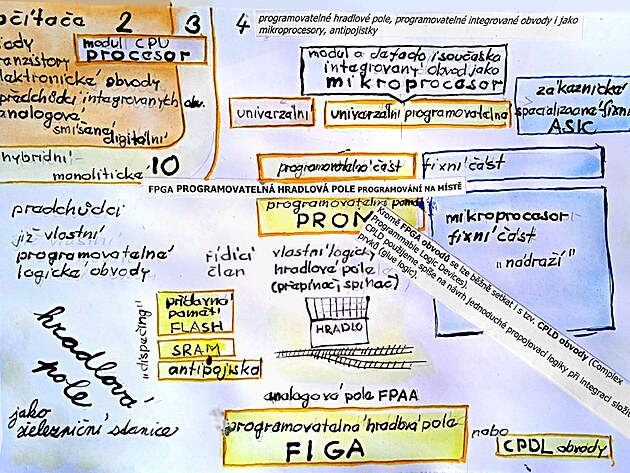 očítača 2 3
modul CPU
procesor
ranzistory
elektronické obvody
předchůdci integrovaných obv.
analogová
smíšená
digitální
hybridní
monolitické 10
4 programovatelné hradlové pole, programovatelné integrované obvody i jako
mikroprocesory, antipojistky
modul a defacto i součástka
integrovaný obvod jako
mikroprocesor
univerzální
univerzální programovatelné
zákaznické
ASIC
programovatelná část
fixní část
FPGA PROGRAMOVATELNÁ HRADLOVÁ POLE PROGRAMOVÁNÍ NA MÍSTĚ
programovatelná
PROM
předchůdci
již vlastní
programovatelné
logické obvody
řídící
člen
vlastní logický
hradlové pole
(přepínač, spínač)
HRADLO
mikroprocesor
fixní část
"nádraží"
Kromě FPGA obvodů se lze běžně setkat i s tzv. CPLD obvody (Complex
Programmable Logic Devices).
CPLD použijeme spíše na návrh jednoduché propojovací logiky při integraci
prvků (glue logic).
"dispečing"
přídavná
paměť
FLASH
SRAM
antipojistka
hradlová
pole
jako
železniční stanice
analogová pole FPAA
programovatelná hradlová pole
FIGA
nebo
CPDL obvody